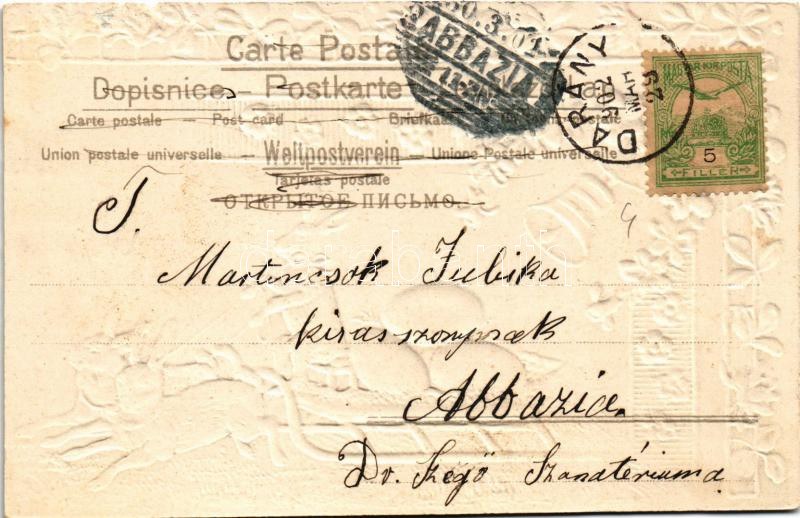 Carte Postale
Dopisnice – Postkarte
Carte postale – Post card – Briefkaart
Union postale universelle – Weltpostverein – Unione Postale universelle
Tarjetas postale
ОТКРЫТОЕ ПИСЬМО.
30.3.02
ABBAZIA
DARÁNY
902
MÁR
29
MAGYAR KIR. POSTA
5
FILLÉR
T.
Martincsok Juliska
kirasszonynak
Abbazia.
Dr. Szegő Szanatóriuma